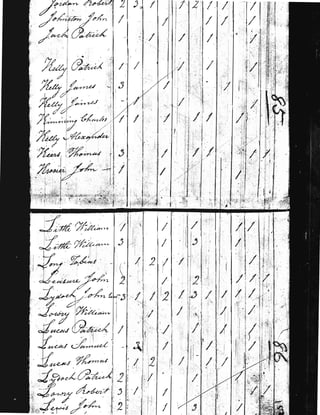 Jordan Robert 2 3 1 1 2 1 1 1
Johnston John 1 1 1 1
Jack Patrick 1 1 1 1
Kelly Patrick 1 1 1 1 1
Kelly James 3 1 1
Kelly James 1 1 1
Kimming Charles 1 1 1 1 1 1
Kelly Alexander
Keers Thomas 3 1 1 1 1 1
John 1 1
85
Little William 1 1 1 1
Little William 3 1 3 1
Long Tobias 1 2 1 1
John 2 1 2 1 1 1
Lydoch John 3 1 1 2 1 3 1 1 1 1
Lowry William 1 1 1
Lucas Patrick 1 1 1 1
Lucas Samuel 3 1 1 1
Lucas Thomas 1 2 1 1
Patrick 2 1 1 1
Lowry Robert 3 1 1 1 1 1
Lewis John 2 1 3 1
86